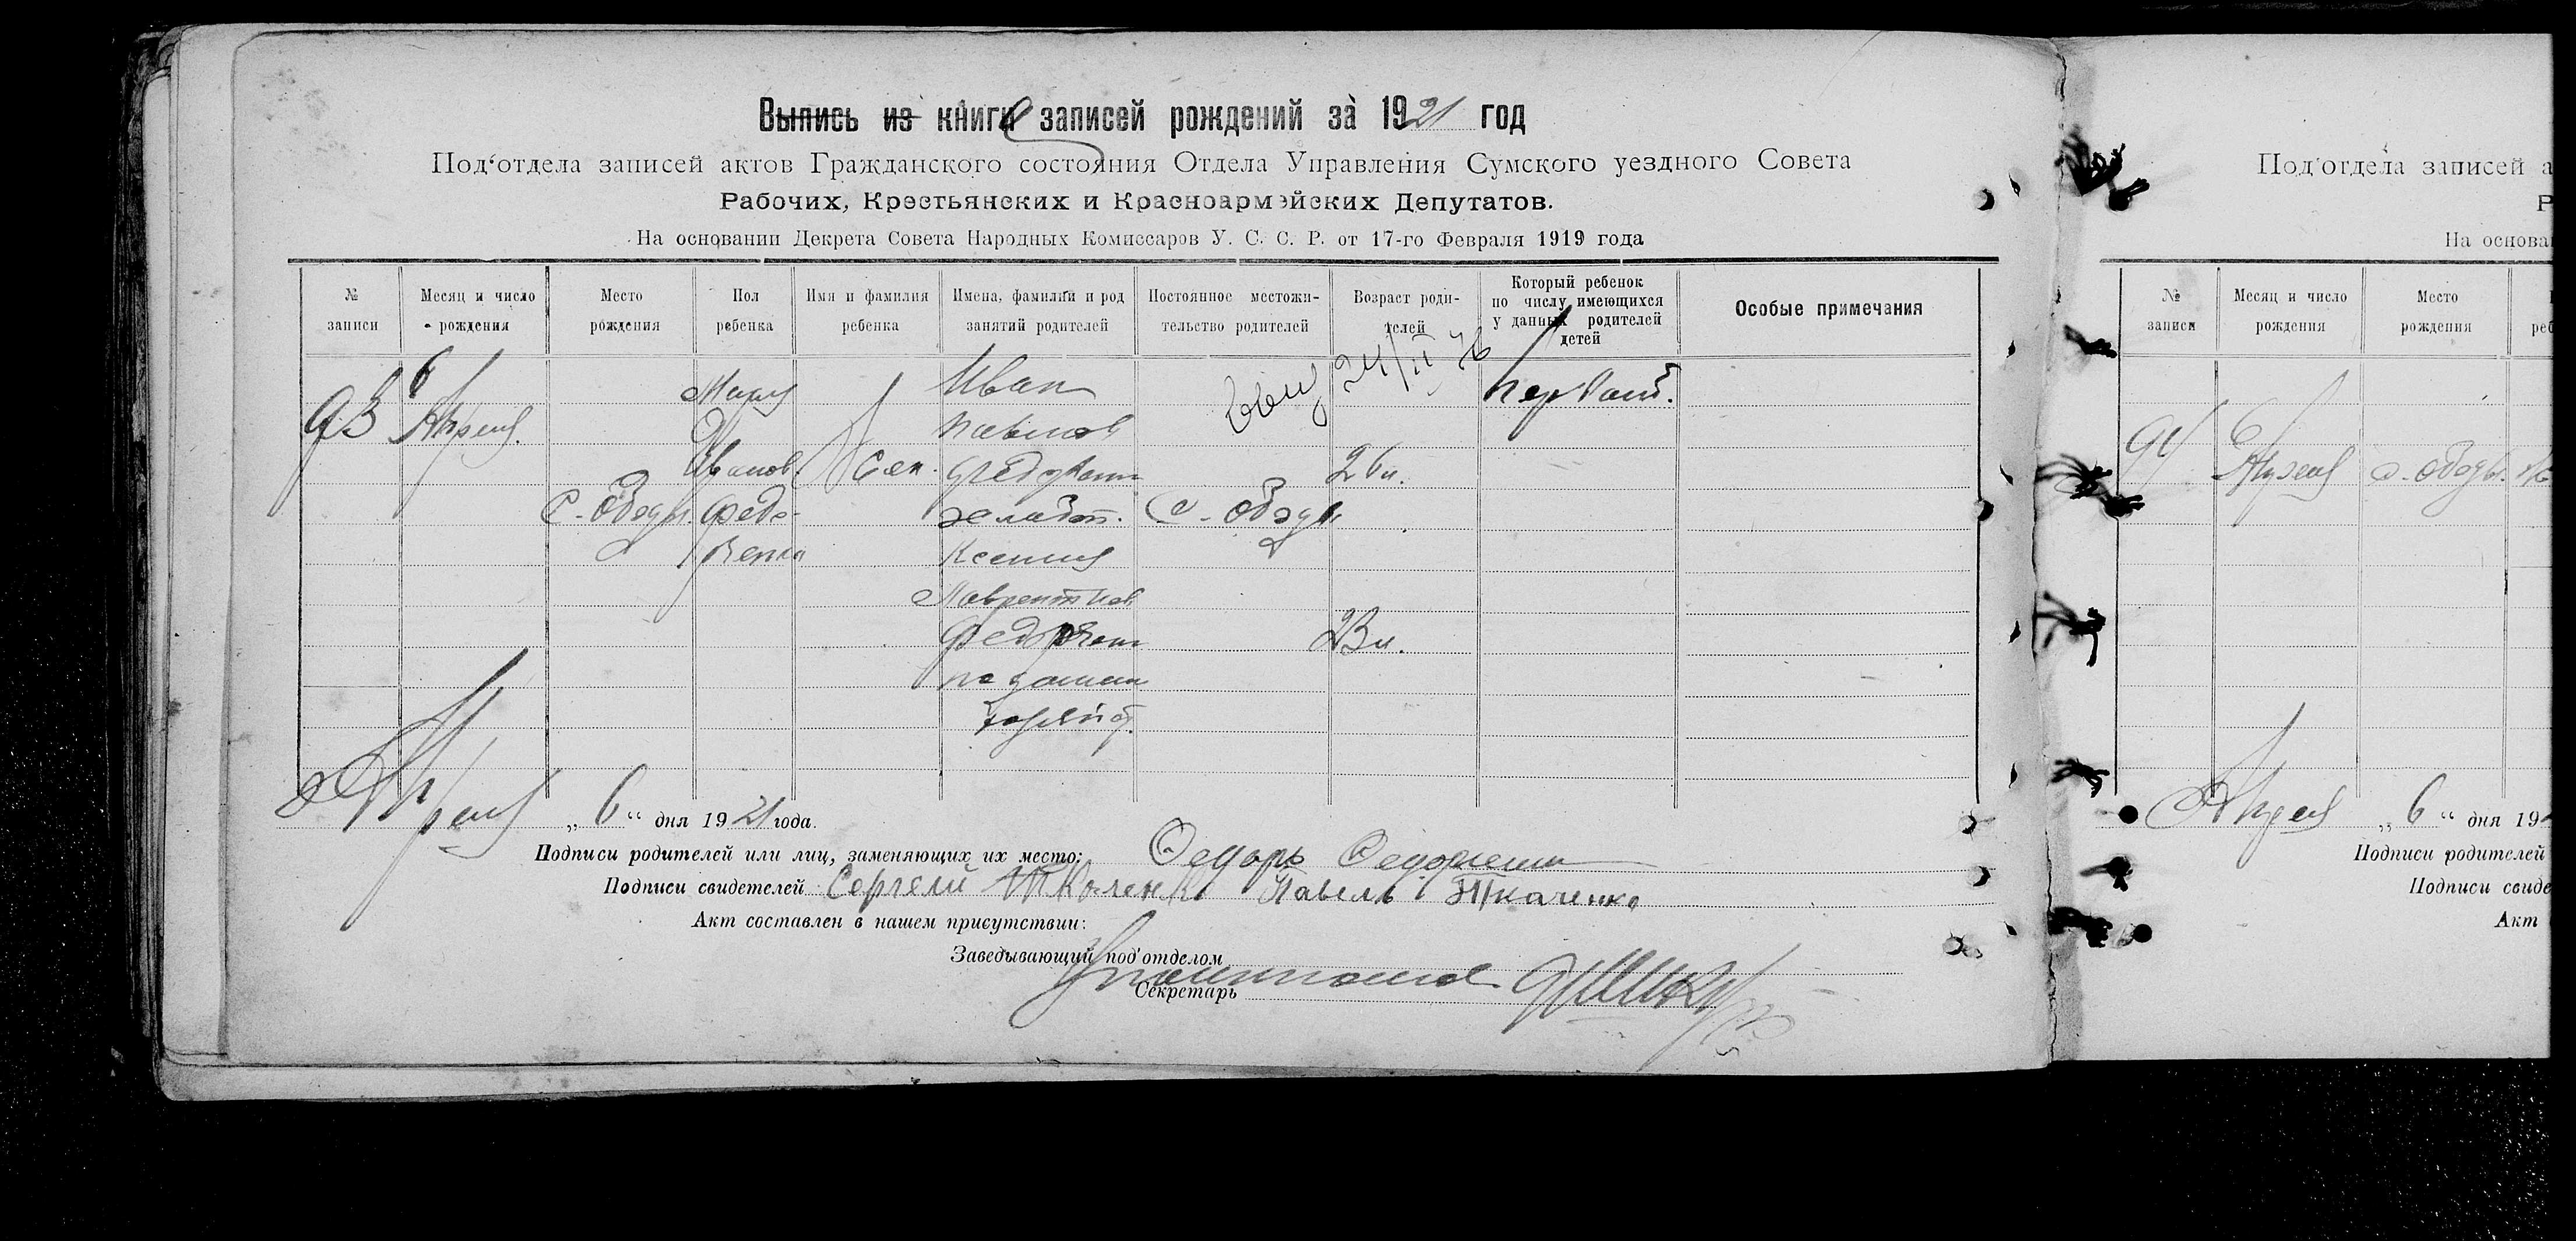 Выпись из книги записей рождений за 1921 год
Под'отдела записей актов Гражданского состояния Отдела Управления Сумского уездного Совета
Рабочих, Крестьянских и Красноармейских Депутатов.
На основании Декрета Совета Народных Комиссаров У. С. С. Р. от 17-го Февраля 1919 года
№ записи
Месяц и число рождения
Место рождения
Пол ребенка
Имя и фамилия ребенка
Имена, фамилии и род занятий родителей
Постоянное местожительство родителей
Возраст родителей
Который ребенок по числу имеющихся у данных родителей детей
Особые примечания
93
6
Апреля
с. Ободы
Иванов.
Федо-
Жен.
Иван
Павлов
Ксения
Лаврентиев
с. Ободы
24/II 76
26 л.
23 л.
первый.
Апреля „6“ дня 1921 года.
Подписи родителей или лиц, заменяющих их место:
Подписи свидетелей Сергей Ткаченко Павель Ткаченко
Акт составлен в нашем присутствии:
Заведывающий под'отделом
Секретарь
Под'отдела записей а
Р
На основа
№ записи
Месяц и число рождения
Место рождения
94
6
Апреля
с. Ободы.
Апреля „6“ дня 19
Подписи родителей
Подписи свиде
Акт